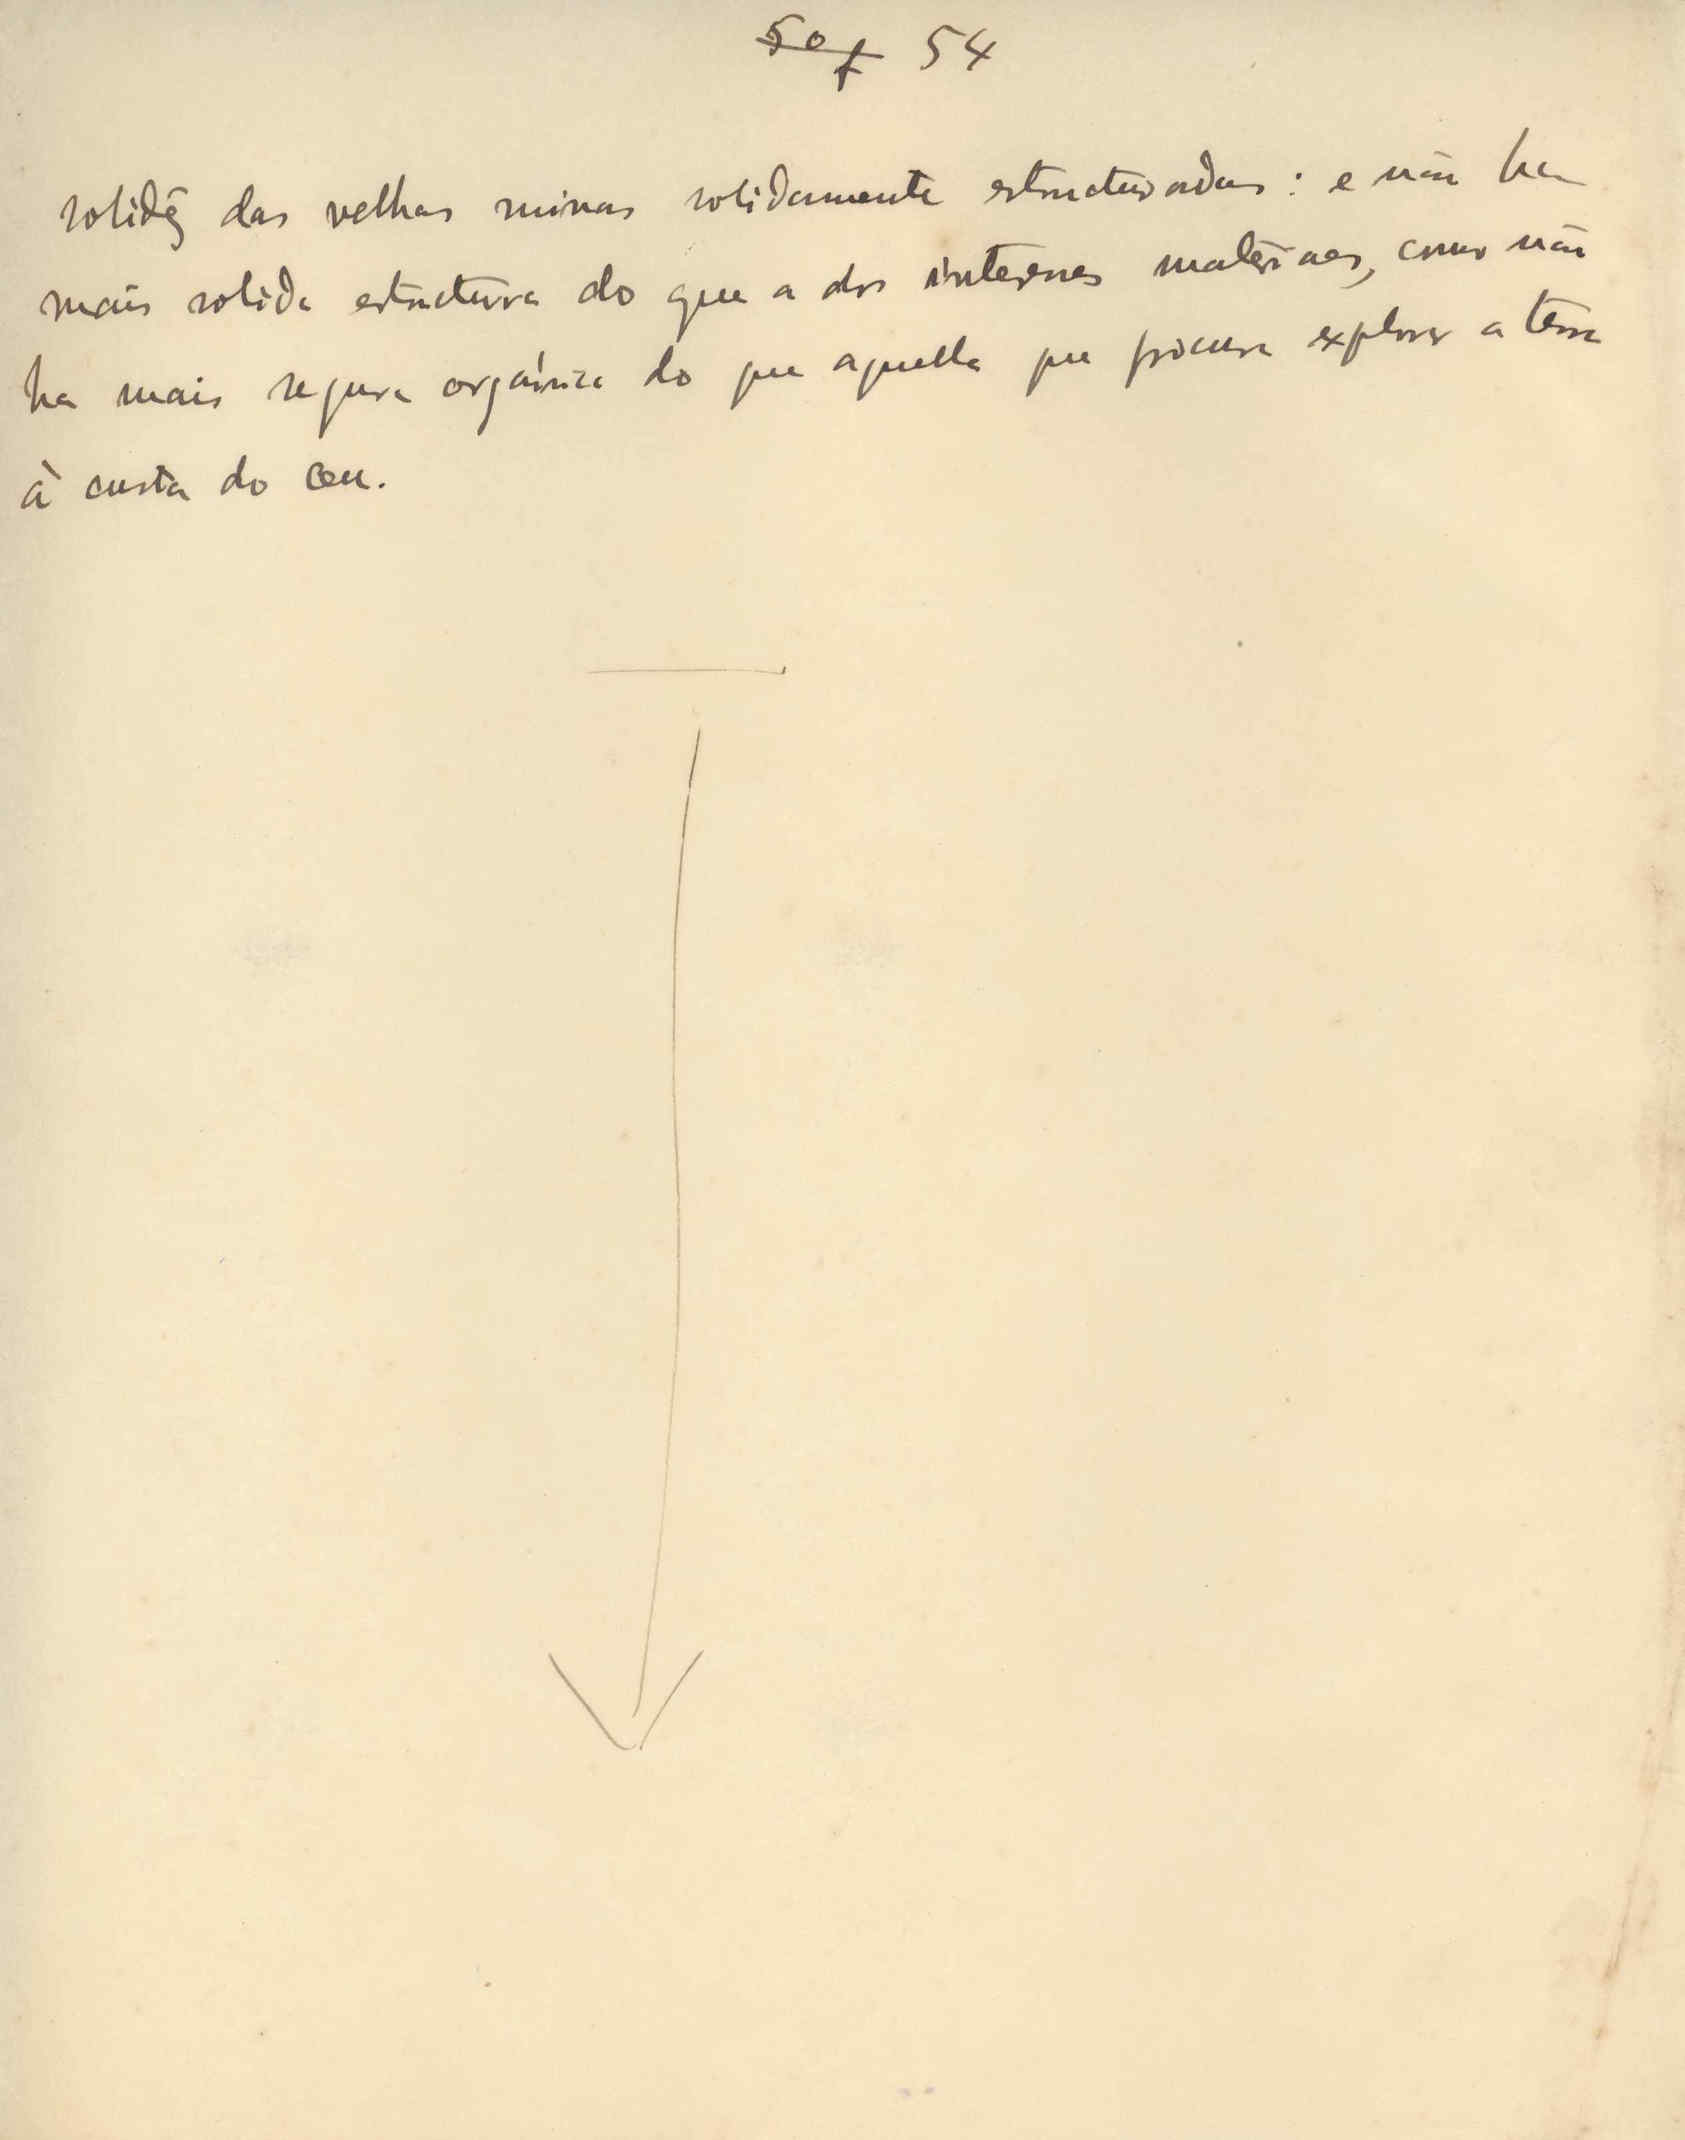 50 54
solidêz das velhas minas solidamente estructuradas: e não ha
mais solida estructura do que a dos interesses materiaes, como não
ha mais segura orgánica do que aquella que procura explorar a terra
à custa do ceu.